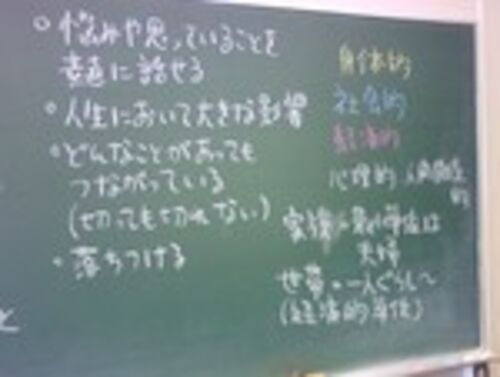 ○ 悩みや思っていることを
素直に話せる
• 人生において大きな影響
• どんなことがあっても
つながっている
(切っても切れない)
• 落ちつける
と
身体的
社会的
経済的
心理的・人間関係
的
家族の最小単位は
夫婦
世帯・一人ぐらし〜
(経済的単位)